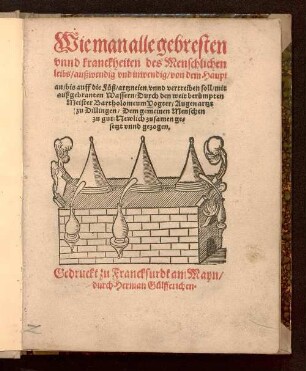 Wie man alle gebresten
vnnd kranckheiten des Menschlichen
leibs / außwendig vnd inwendig / von dem Haupt
an / bis auff die Füß / artzneien vnnd vertreiben soll / mit
außgebranten Wassern / Durch den weit berümpten
Meister Bartholomeum Vogter / Augen artzt
zu Dillingen / Dem gemeinen Menschen
zu gut Newlich zusamen ges
setzt vnnd gezogen,
Gedruckt zu Franckfurdt am Mayn /
durch Herman Gülfferichen.